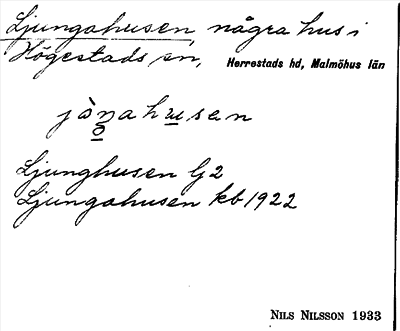 Ljungahusen, några hus i
Högestads sn, Herrestads hd, Malmöhus län
jòŋahusen
o
Ljunghusen G2
Ljungahusen kb 1922
NILS NILSSON 1933